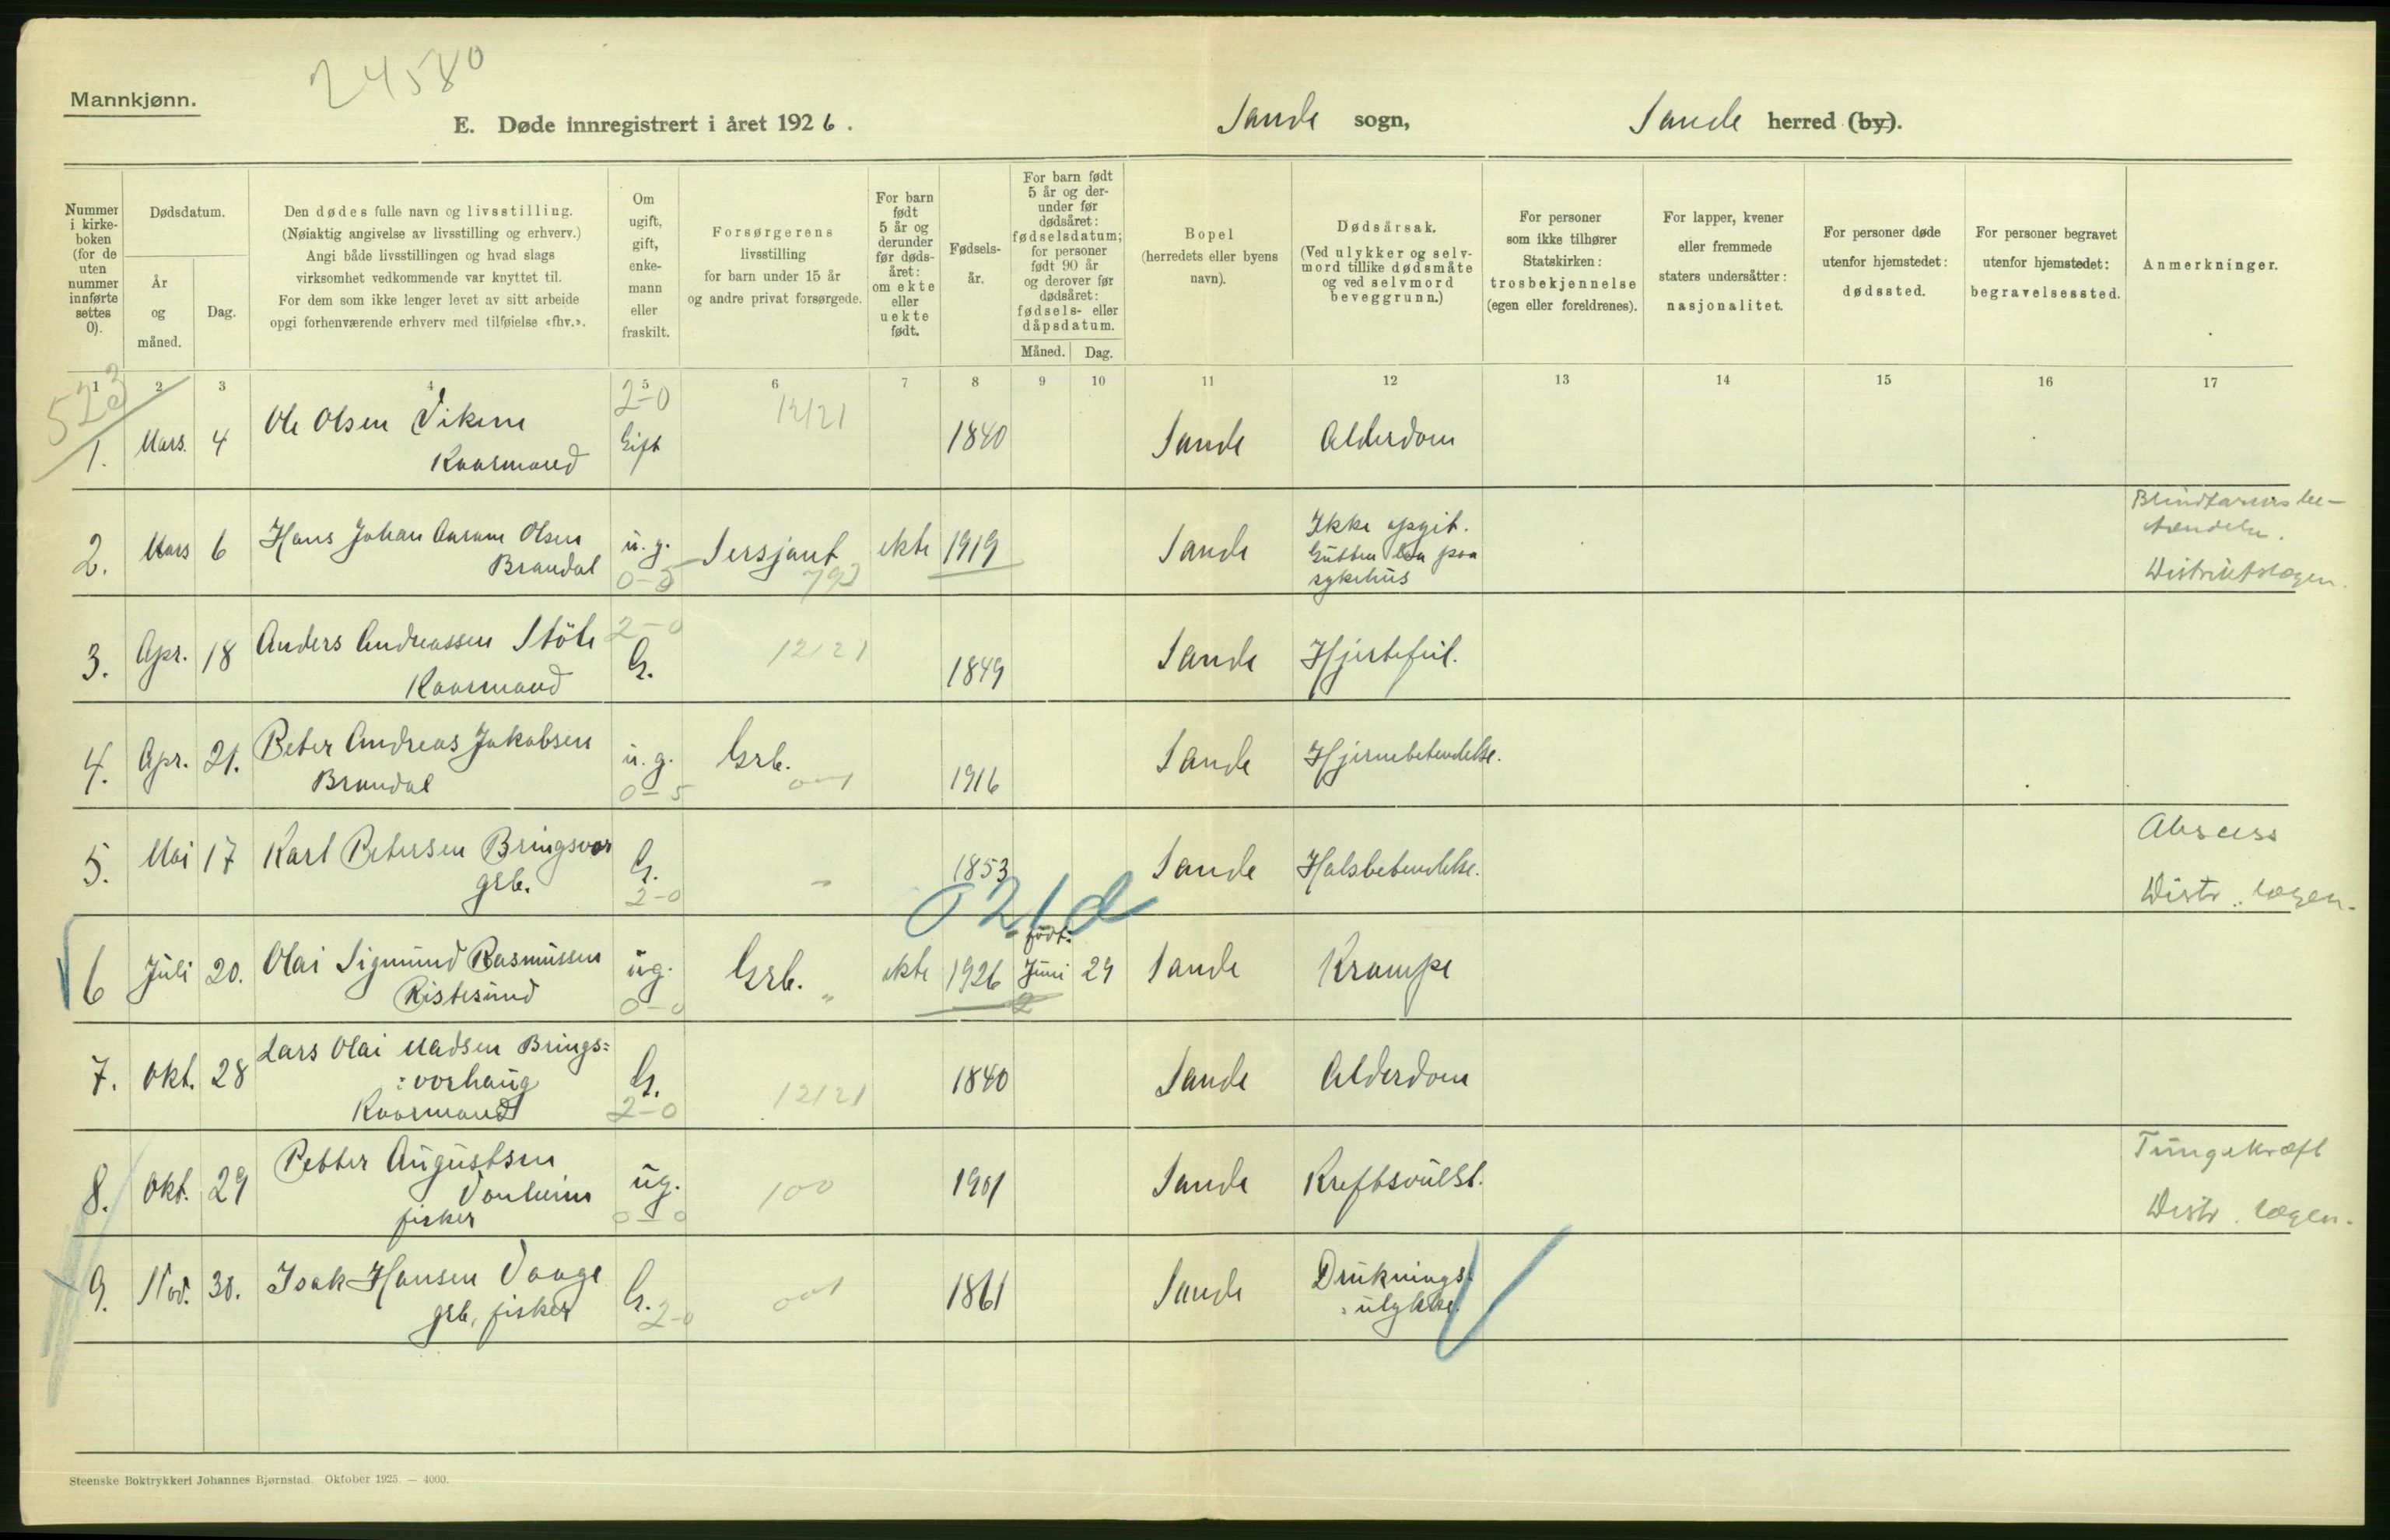 24580
Mannkjønn.
E. Døde innregistrert i året 1926.
Sande sogn,
Sande herred (by).
Nummer i kirke-boken (for de uten nummer innførte settes 0).
Dødsdatum.
År og måned.
Dag.
Den dødes fulle navn og livsstilling.
(Nøiaktig angivelse av livsstilling og erhverv.)
Angi både livsstillingen og hvad slags
virksomhet vedkommende var knyttet til.
For dem som ikke lenger levet av sitt arbeide
opgi forhenværende erhverv med tilføielse «fhv.».
Om ugift, gift, enke-mann eller fraskilt.
Forsørgerens
livsstilling
for barn under 15 år
og andre privat forsørgede.
For barn født 5 år og derunder før døds-året: om ekte eller uekte født.
Fødsels-år.
For barn født 5 år og der-under før dødsåret: fødselsdatum; for personer født 90 år og derover før dødsåret: fødsels- eller dåpsdatum.
Måned. Dag.
Bopel
(herredets eller byens
navn).
Dødsårsak.
(Ved ulykker og selv-
mord tillike dødsmåte
og ved selvmord
beveggrunn.)
For personer
som ikke tilhører
Statskirken:
trosbekjennelse
(egen eller foreldrenes).
For lapper, kvener
eller fremmede
staters undersåtter:
nasjonalitet.
For personer døde
utenfor hjemstedet:
dødssted.
For personer begravet
utenfor hjemstedet:
begravelsessted.
Anmerkninger.
1 2 3 4 5 6 7 8 9 10 11 12 13 14 15 16 17
523
2-0 1221
1. Mars. 4 Ole Olsen Viken Gift 1840 Sande Alderdom
Kaarmand
2. Mars 6 Hans Johan Aarum Olsen u.g. Sersjant ekte 1919 Sande Ikke opgit.
Brandal 0-5 792 Gutten laa paa
sykehus
Blindtarmsbe-
tændelse.
Distriktslægen.
3. Apr. 18 Anders Andreassen Støle 2-0 G. 1221 1849 Sande Hjertefeil.
Kaarmand
4. Apr. 21. Peter Andreas Jakobsen u.g. Grb. 1916 Sande Hjernebetendelse.
Brandal 0-5 001
5. Mai 17 Karl Petersen Bringsvor G. 1853 Sande Halsbetendelse. Abscess
grb. 2-0 " Distr. lægen.
021d
født:
6 Juli 20. Olai Sigmund Rasmussen ug. Grb. ekte 1926 Juni 29 Sande Krampe
Ristesund 0-0 " 2
7. Okt. 28 Lars Olai Madsen Brings= G. 1840 Sande Alderdom
=vorhaug
Kaarmand 2-0 1221
8. Okt. 29 Petter Augustsen ug. 100 1901 Sande Kreftsvulst. Tungekræft
fisker 0-0 Distr. lægen.
9. Nov. 30. Isak Hansen Vaage G. 2-0 001 1861 Sande Druknings=
grb, fisker =ulykke.
Steenske Boktrykkeri Johannes Bjørnstad. Oktober 1925. — 4000.